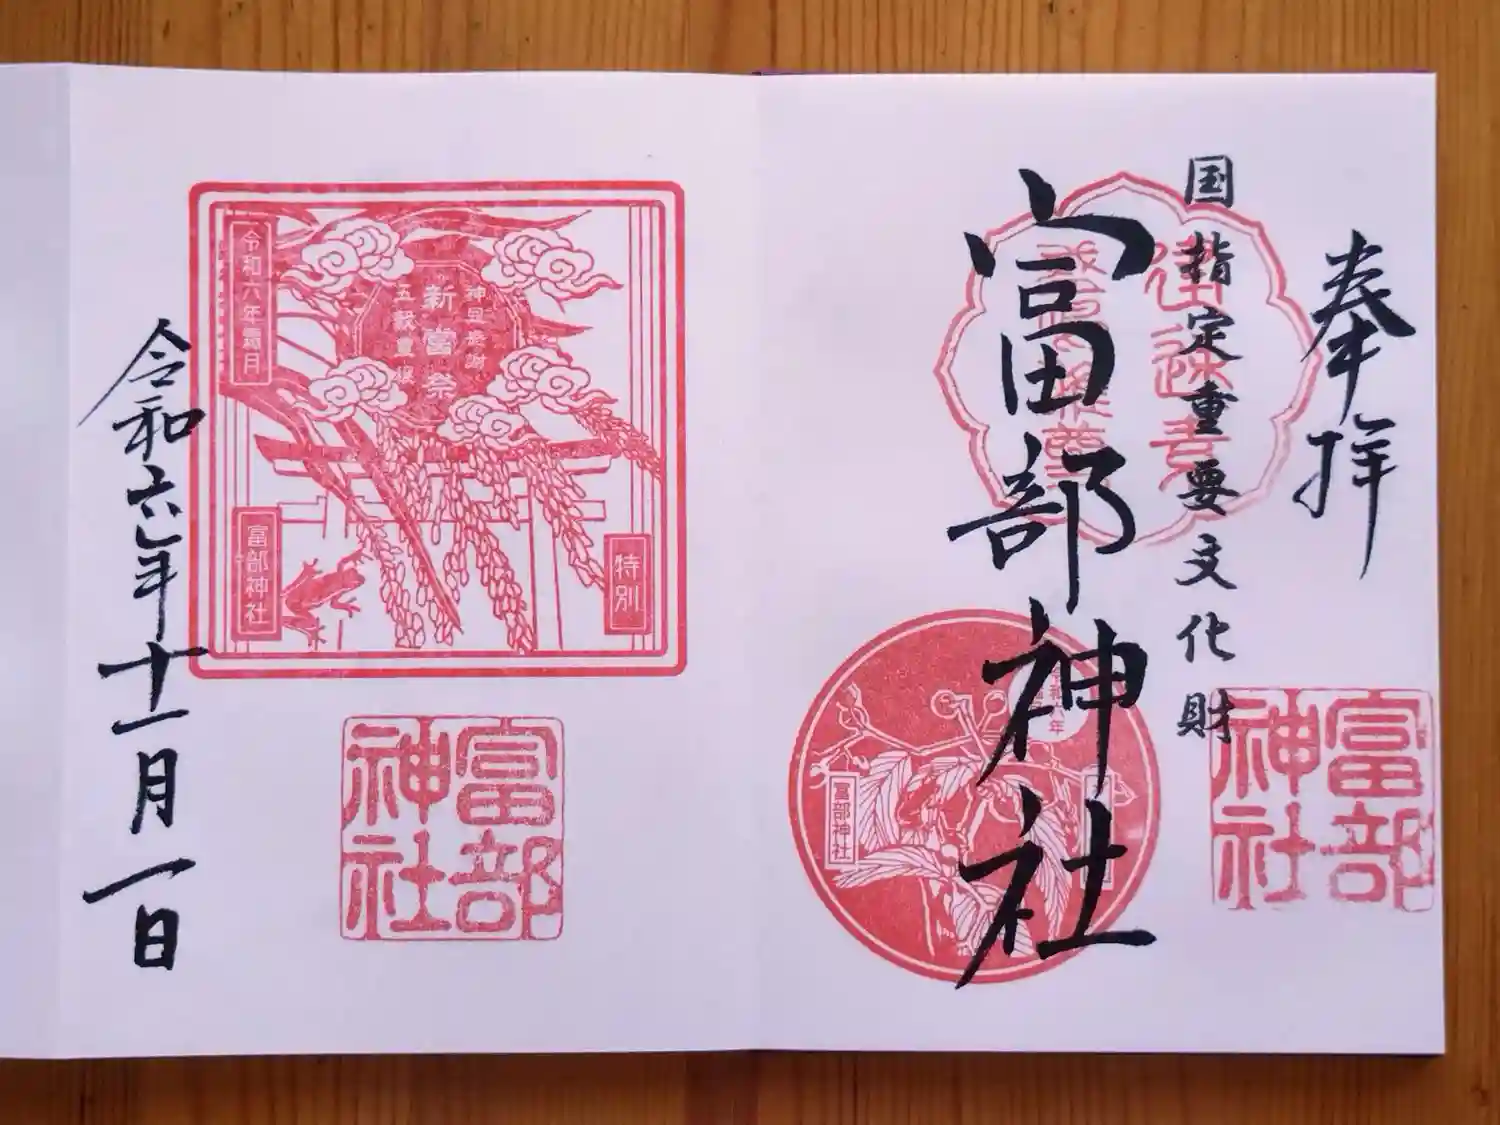 奉拝
国指定重要文化財
富部神社
富部
神社
富部神社
令和六年
神恩感謝
新嘗祭
五穀豊穣
令和六年霜月
特別
富部神社
富部
神社
令和六年十一月一日